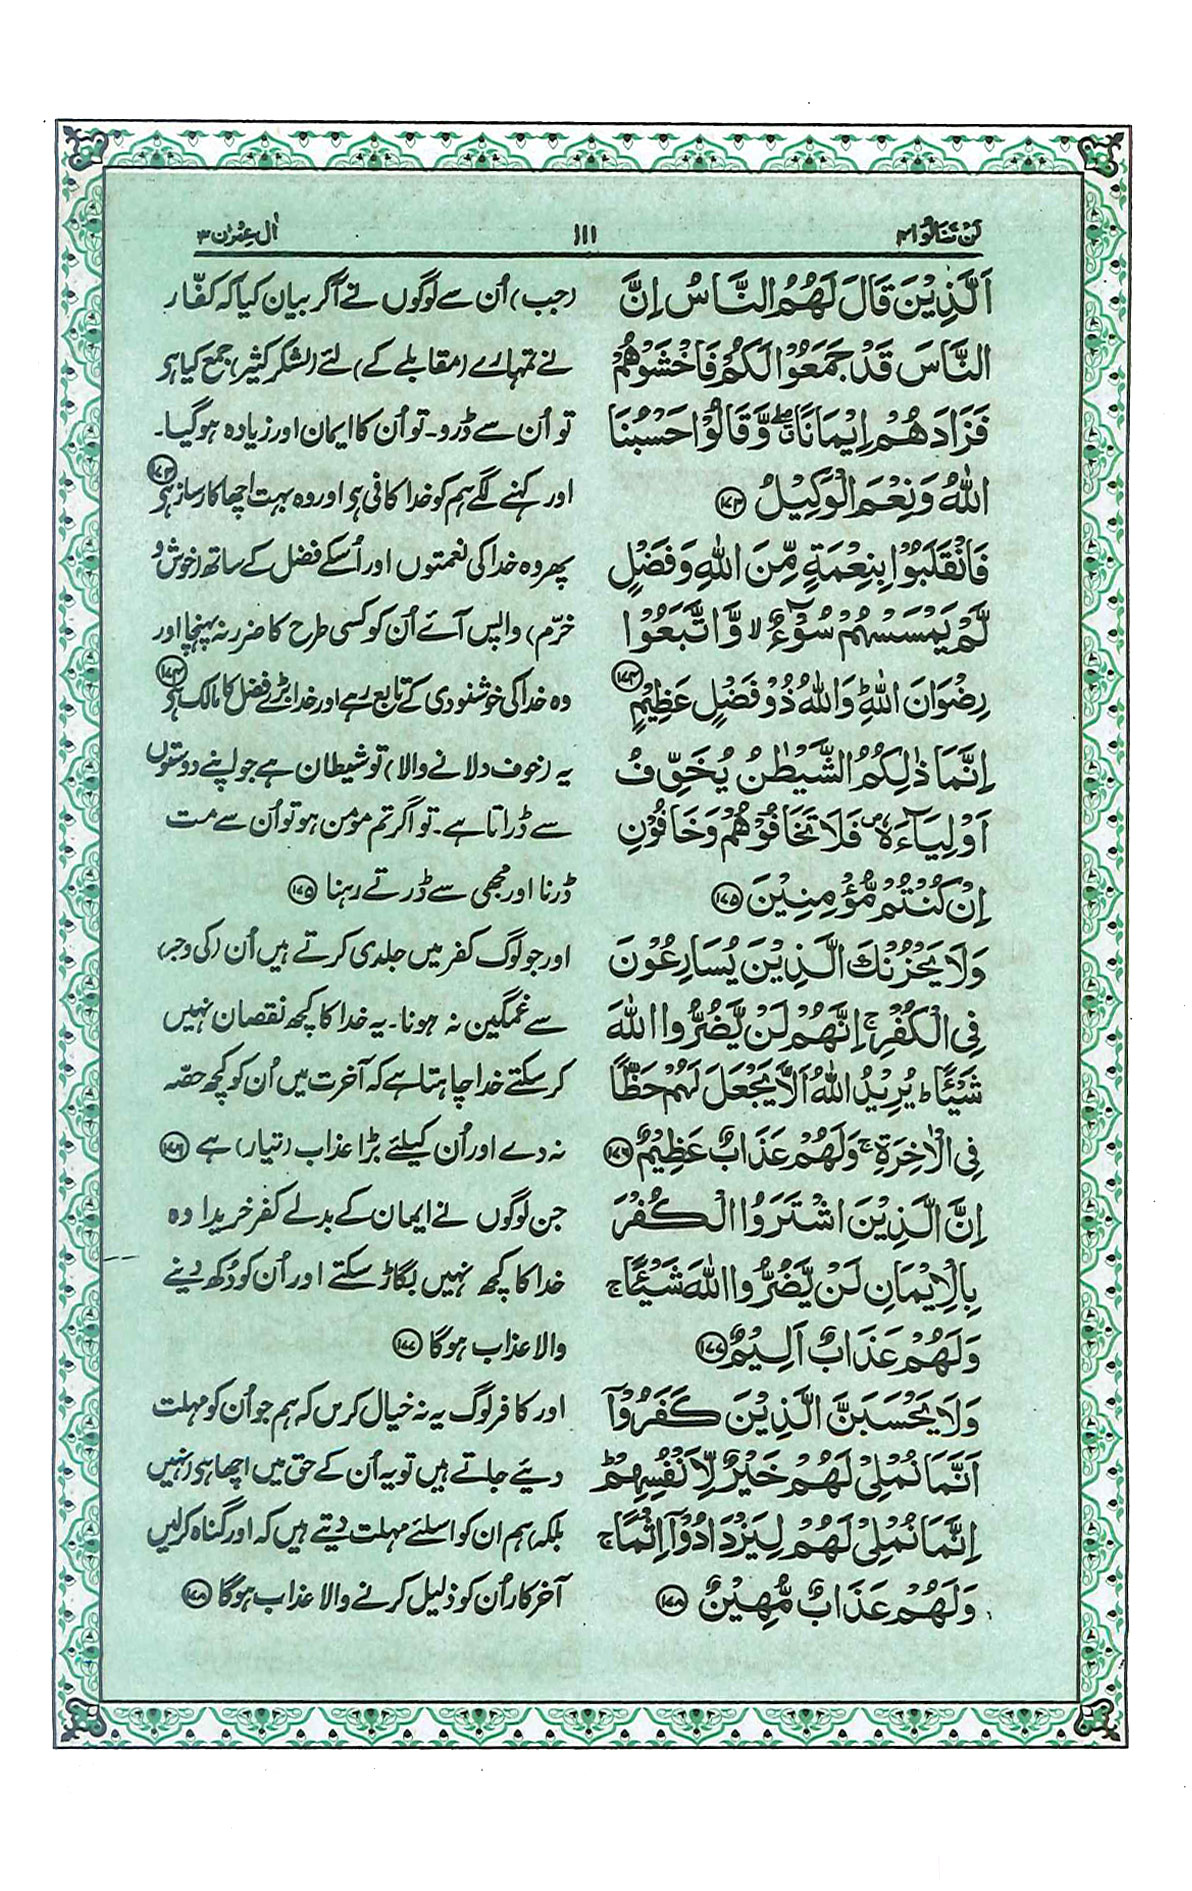 لَنْ تَنَالُوا ۴
۱۱۱
اٰل عِمْرٰن ۳
اَلَّذِيْنَ قَالَ لَهُمُ النَّاسُ اِنَّ
النَّاسَ قَدْ جَمَعُوْا لَكُمْ فَاخْشَوْهُمْ
فَزَادَهُمْ اِيْمَانًا ۖ وَّقَالُوْا حَسْبُنَا
اللّٰهُ وَنِعْمَ الْوَكِيْلُ ۱۷۳
فَانْقَلَبُوْا بِنِعْمَةٍ مِّنَ اللّٰهِ وَفَضْلٍ
لَّمْ يَمْسَسْهُمْ سُوْٓءٌ ۙ وَّاتَّبَعُوْا
رِضْوَانَ اللّٰهِ ؕ وَاللّٰهُ ذُوْ فَضْلٍ عَظِيْمٍ ۱۷۴
اِنَّمَا ذٰلِكُمُ الشَّيْطٰنُ يُخَوِّفُ
اَوْلِيَآءَهٗ ۪ فَلَا تَخَافُوْهُمْ وَخَافُوْنِ
اِنْ كُنْتُمْ مُّؤْمِنِيْنَ ۱۷۵
وَلَا يَحْزُنْكَ الَّذِيْنَ يُسَارِعُوْنَ
فِى الْكُفْرِ ۚ اِنَّهُمْ لَنْ يَّضُرُّوا اللّٰهَ
شَيْـًٔا ؕ يُرِيْدُ اللّٰهُ اَلَّا يَجْعَلَ لَهُمْ حَظًّا
فِى الْاٰخِرَةِ ۚ وَلَهُمْ عَذَابٌ عَظِيْمٌ ۱۷۶
اِنَّ الَّذِيْنَ اشْتَرَوُا الْكُفْرَ
بِالْاِيْمَانِ لَنْ يَّضُرُّوا اللّٰهَ شَيْـًٔا ۚ
وَلَهُمْ عَذَابٌ اَلِيْمٌ ۱۷۷
وَلَا يَحْسَبَنَّ الَّذِيْنَ كَفَرُوْٓا
اَنَّمَا نُمْلِىْ لَهُمْ خَيْرٌ لِّاَنْفُسِهِمْ ؕ
اِنَّمَا نُمْلِىْ لَهُمْ لِيَزْدَادُوْٓا اِثْمًا ۚ
وَلَهُمْ عَذَابٌ مُّهِيْنٌ ۱۷۸
(جب) اُن سے لوگوں نے آکر بیان کیا کہ کفّار
نے تمہارے (مقابلے کے) لئے (لشکر کثیر) جمع کیا ہو
تو اُن سے ڈرو۔ تو اُن کا ایمان اور زیادہ ہوگیا۔
اور کہنے لگے ہم کو خدا کافی ہو اور وہ بہت اچھا کارساز ہو ۱۷۳
پھر وہ خدا کی نعمتوں اور اُسکے فضل کے ساتھ (خوش و
خرّم) واپس آئے اُن کو کسی طرح کا ضرر نہ پہنچا اور
وہ خدا کی خوشنودی کے تابع رہے اور خدا بڑے فضل کا مالک ہو ۱۷۴
یہ (خوف دلانے والا) تو شیطان ہے جو اپنے دوستوں
سے ڈراتا ہے۔ تو اگر تم مؤمن ہو تو اُن سے مت
ڈرنا اور مجھی سے ڈرتے رہنا ۱۷۵
اور جو لوگ کفر میں جلدی کرتے ہیں اُن (کی وجہ)
سے غمگین نہ ہونا۔ یہ خدا کا کچھ نقصان نہیں
کرسکتے خدا چاہتا ہے کہ آخرت میں اُن کو کچھ حصّہ
نہ دے اور اُن کیلئے بڑا عذاب (تیار) ہے ۱۷۶
جن لوگوں نے ایمان کے بدلے کفر خریدا وہ
خدا کا کچھ نہیں بگاڑ سکتے اور اُن کو دُکھ دینے
والا عذاب ہوگا ۱۷۷
اور کافر لوگ یہ نہ خیال کریں کہ ہم جو اُن کو مہلت
دیئے جاتے ہیں تو یہ اُن کے حق میں اچھا ہے (نہیں
بلکہ) ہم ان کو اسلئے مہلت دیتے ہیں کہ اور گناہ کرلیں
آخر کار اُن کو ذلیل کرنے والا عذاب ہوگا ۱۷۸